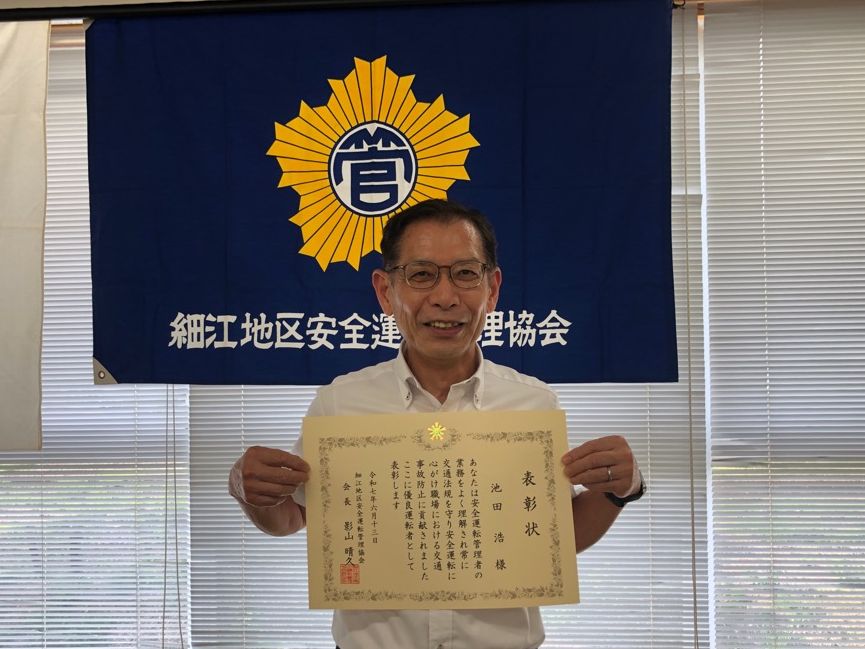 管
細江地区安全運
理協会
表彰状
池田 浩 様
あなたは安全運転管理者の
業務をよく理解され常に
交通法規を守り安全運転に
心がけ職場における交通
事故防止に貢献されました
ここに優良運転者として
表彰します
令和七年六月十三日
細江地区安全運転管理協会
会長 影山 晴久